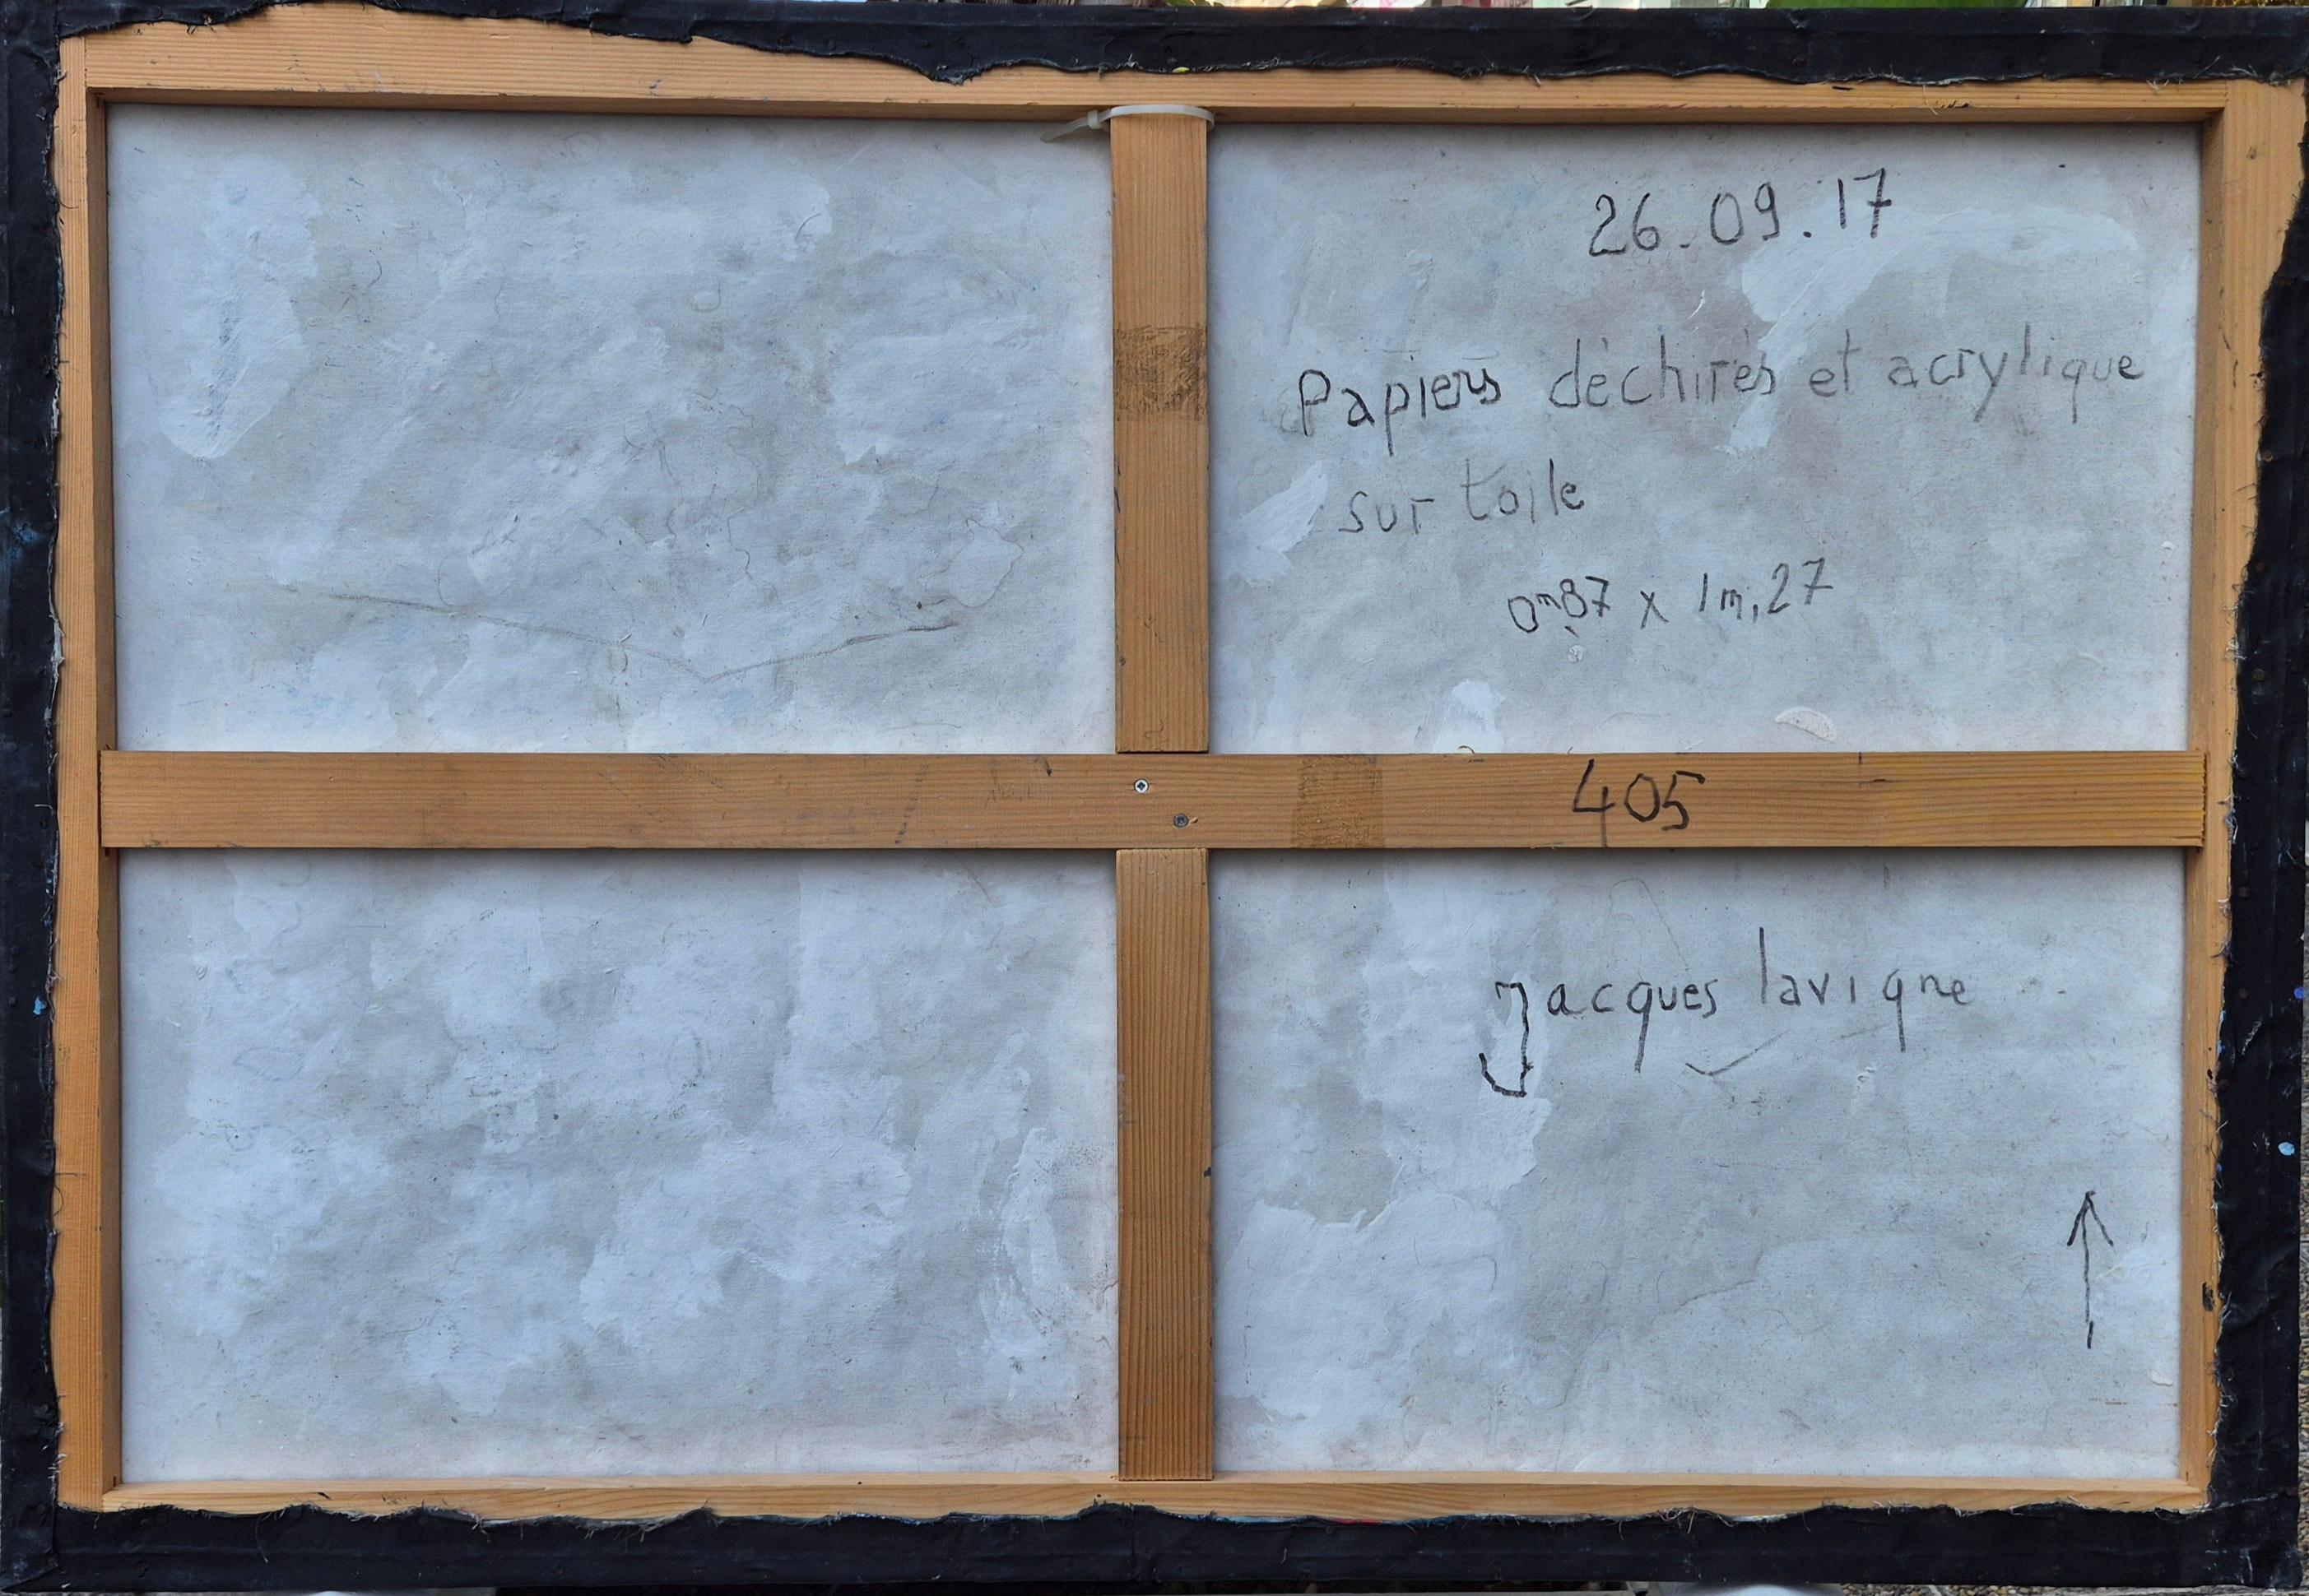 26.09.17
Papiers déchirés et acrylique
sur toile
0m,87 x 1m,27
405
Jacques lavigne